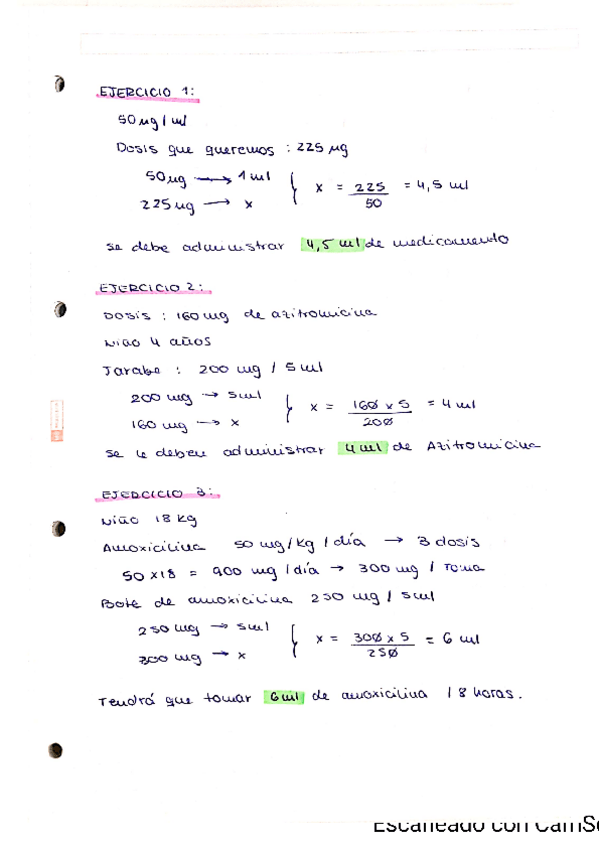 EJERCICIO 1:
50 µg / ml
Dosis que queremos : 225 µg
50 µg → 1 ml
225 µg → x
x = 225 / 50 = 4,5 ml
se debe administrar 4,5 ml de medicamento
EJERCICIO 2:
Dosis : 160 mg de azitromicina
Niño 4 años
Jarabe : 200 mg / 5 ml
200 mg → 5 ml
160 mg → x
x = 160 x 5 / 200 = 4 ml
se le deben administrar 4 ml de Azitromicina
EJERCICIO 3:
Niño 18 Kg
Amoxicilina 50 mg/Kg/día → 3 dosis
50 x 18 = 900 mg / día → 300 mg / Toma
Bote de amoxicilina 250 mg / 5 ml
250 mg → 5 ml
300 mg → x
x = 300 x 5 / 250 = 6 ml
Tendrá que tomar 6 ml de amoxicilina / 8 horas.
Escaneado con CamS